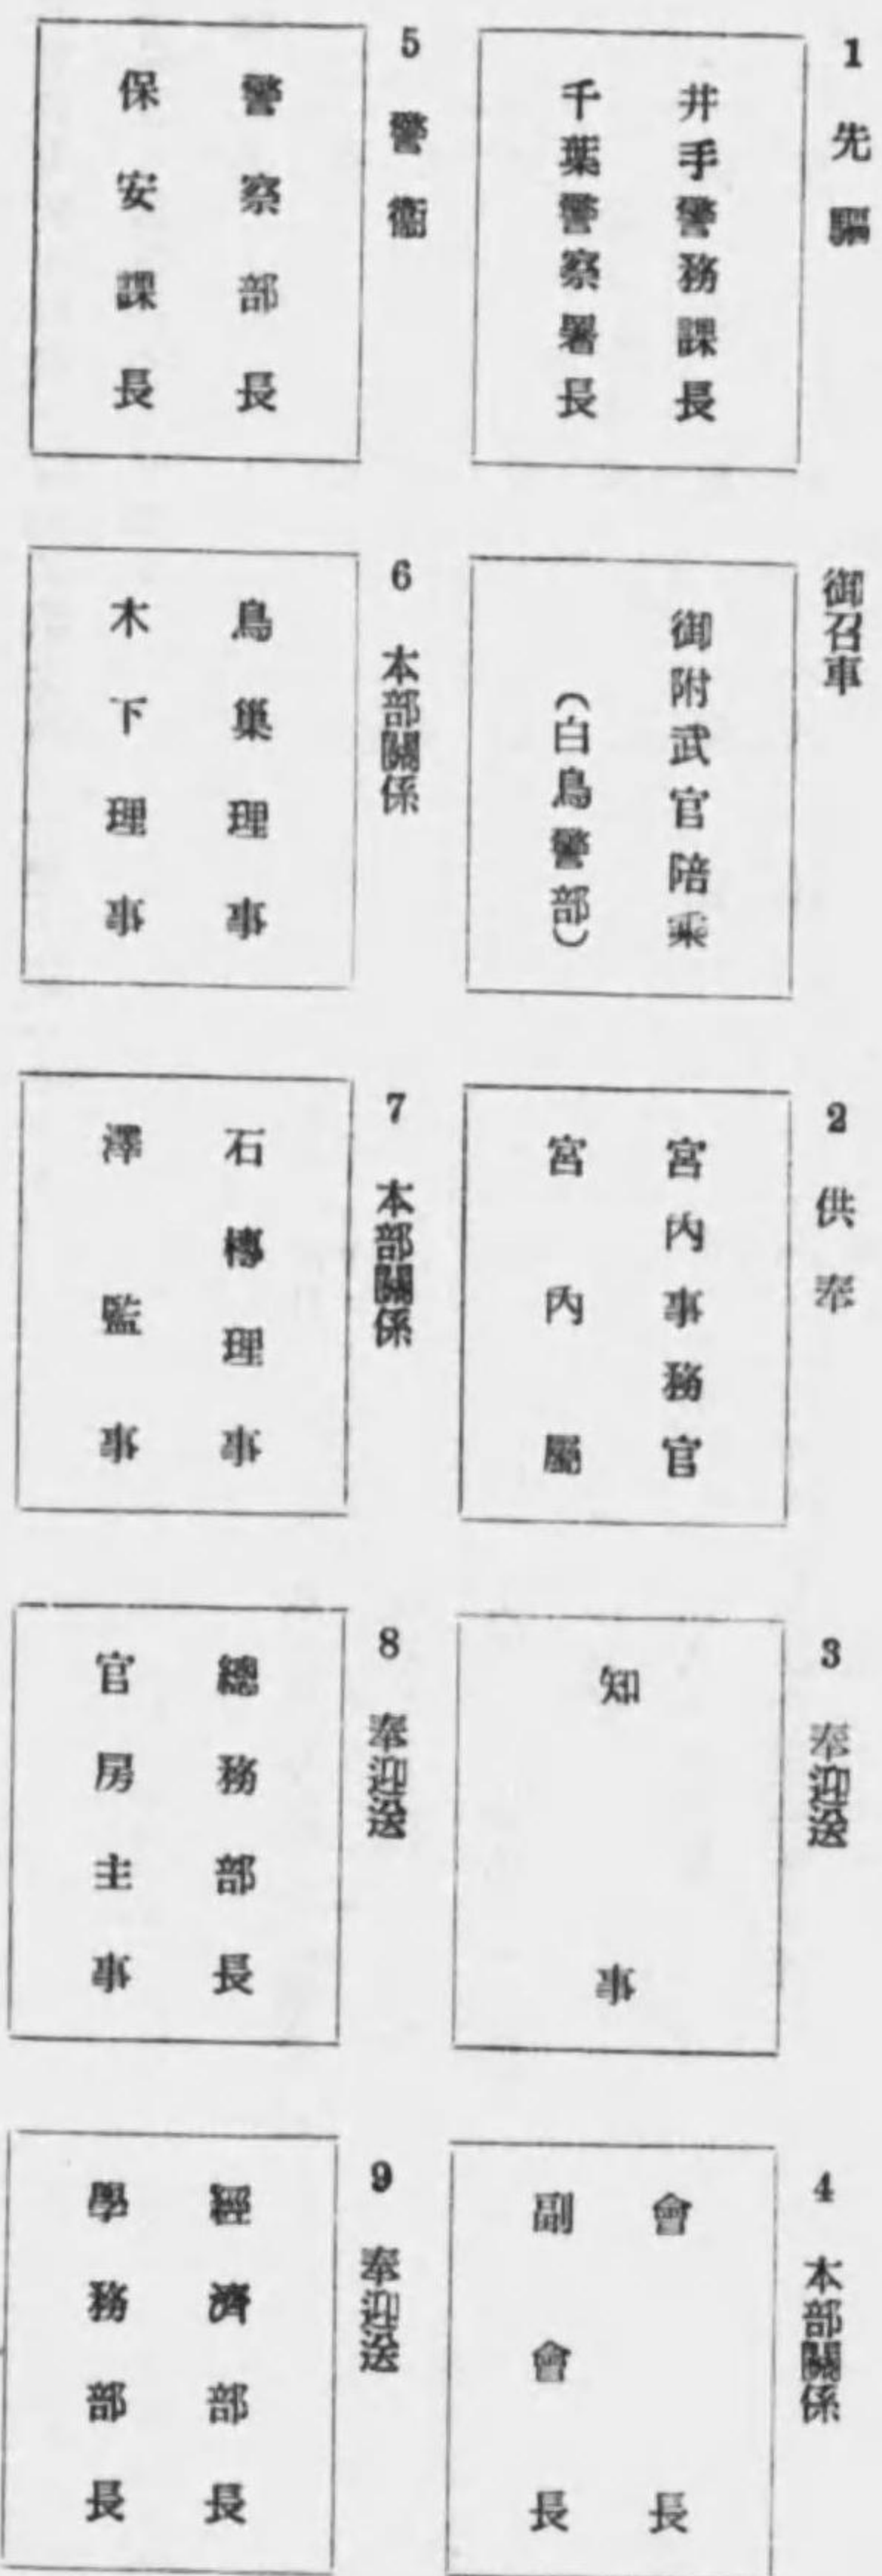 1 先驅
井手警務課長
千葉警察署長
御召車
御附武官陪乘
（白鳥警部）
2 供奉
宮內事務官
宮內屬
3 奉迎送
知事
4 本部關係
會長
副會長
5 警衞
警察部長
保安課長
6 本部關係
鳥巢理事
木下理事
7 本部關係
石榑理事
澤監事
8 奉迎送
總務部長
官房主事
9 奉迎送
經濟部長
學務部長